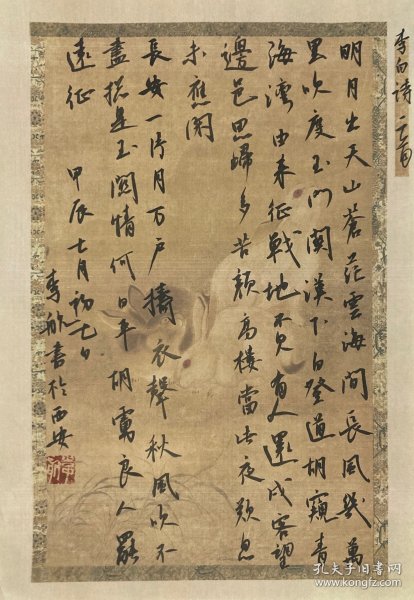 李白诗二首
明月出天山蒼茫雲海間長風幾萬
里吹度玉门関漢下白登道胡窺青
海湾由来征戰地不见有人還戍客望
邊邑思歸多苦颜高樓當此夜歎息
未應閑
長安一片月万户擣衣聲秋風吹不
盡揔是玉関情何日平胡虜良人罷
遠征 甲辰七月初七日
李書於西安
孔夫子旧书网
www.kongfz.com